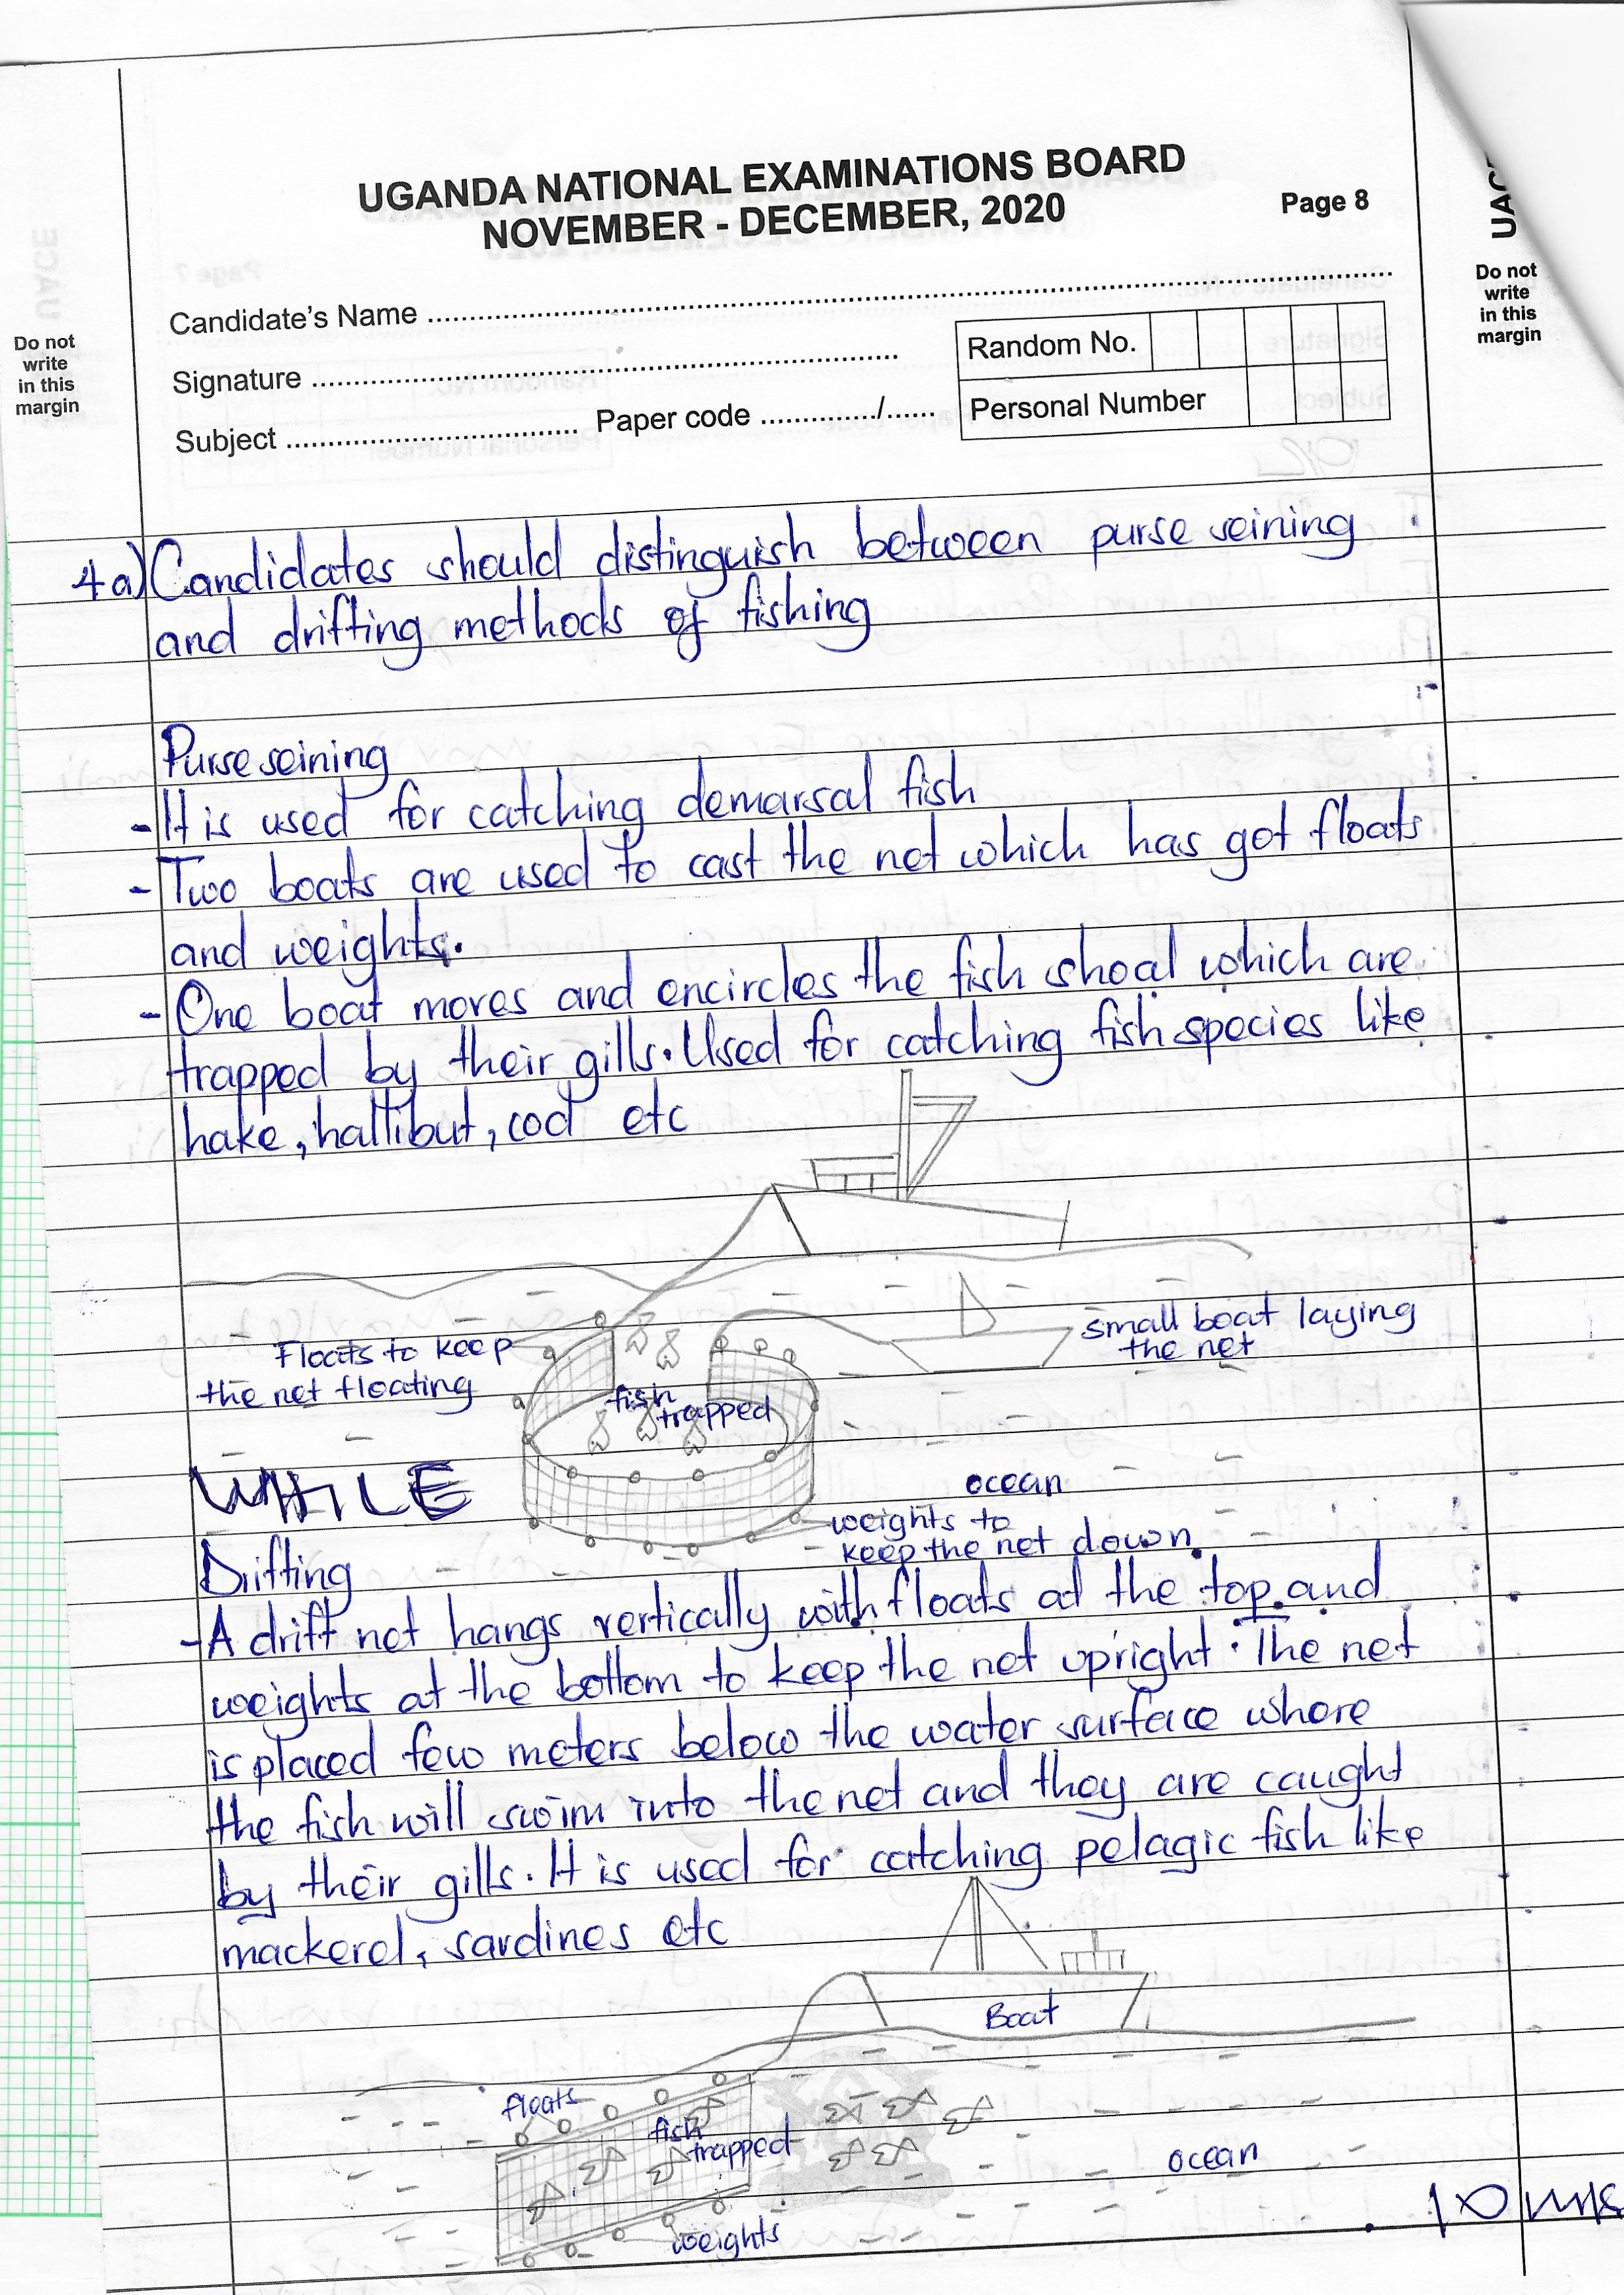 UGANDA NATIONAL EXAMINATIONS BOARD
NOVEMBER - DECEMBER, 2020
Page 8
Candidate's Name
Signature
Random No.
Subject
Paper code ............/......
Personal Number
Do not
write
in this
margin
UACE
Do not
write
in this
margin
4a) Candidates should distinguish between purse seining
and drifting methods of fishing
Purse seining
- It is used for catching demarsal fish
- Two boats are used to cast the net which has got floats
and weights.
- One boat moves and encircles the fish shoal which are
trapped by their gills. Used for catching fish species like
hake, hallibut, cod etc
small boat laying
the net
Floats to keep
the net floating
fish
trapped
WHILE
ocean
weights to
keep the net down
Drifting
- A drift net hangs vertically with floats at the top and
weights at the bottom to keep the net upright. The net
is placed few meters below the water surface where
the fish will swim into the net and they are caught
by their gills. It is used for catching pelagic fish like
mackerel, sardines etc
Boat
floats
fish
trapped
ocean
weights
10 mks